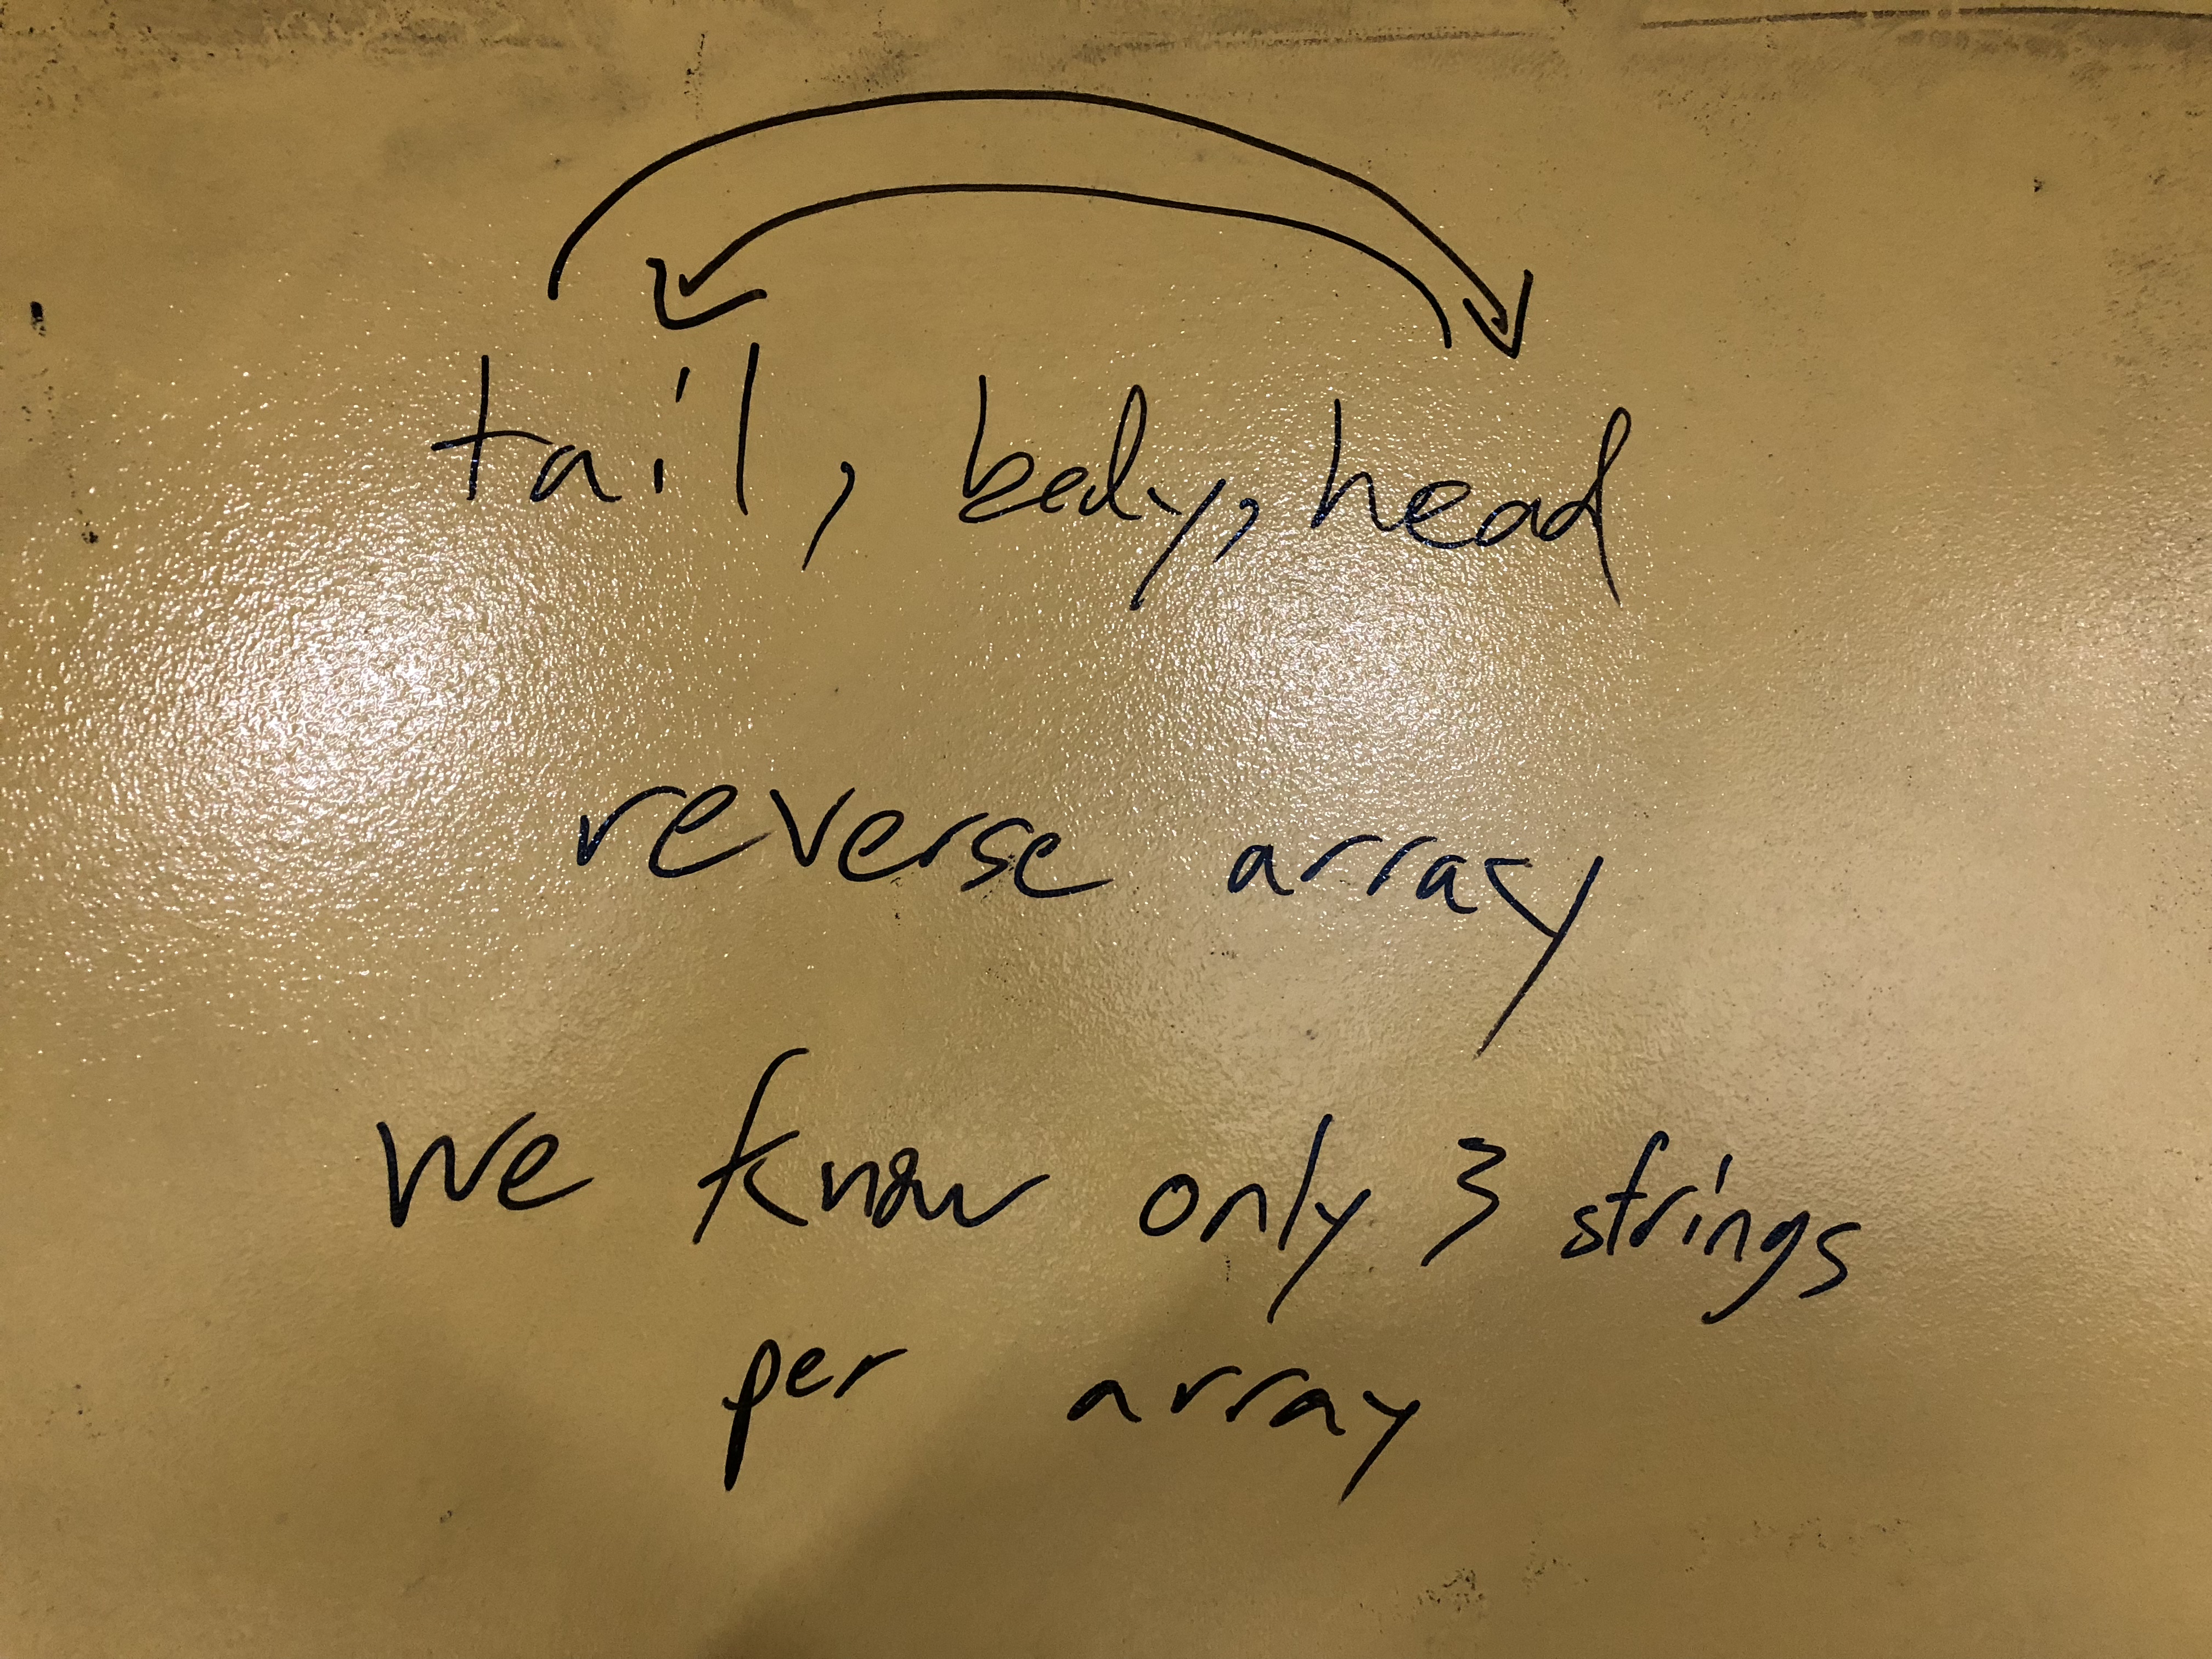 tail, body, head
reverse array
we know only 3 strings
per array